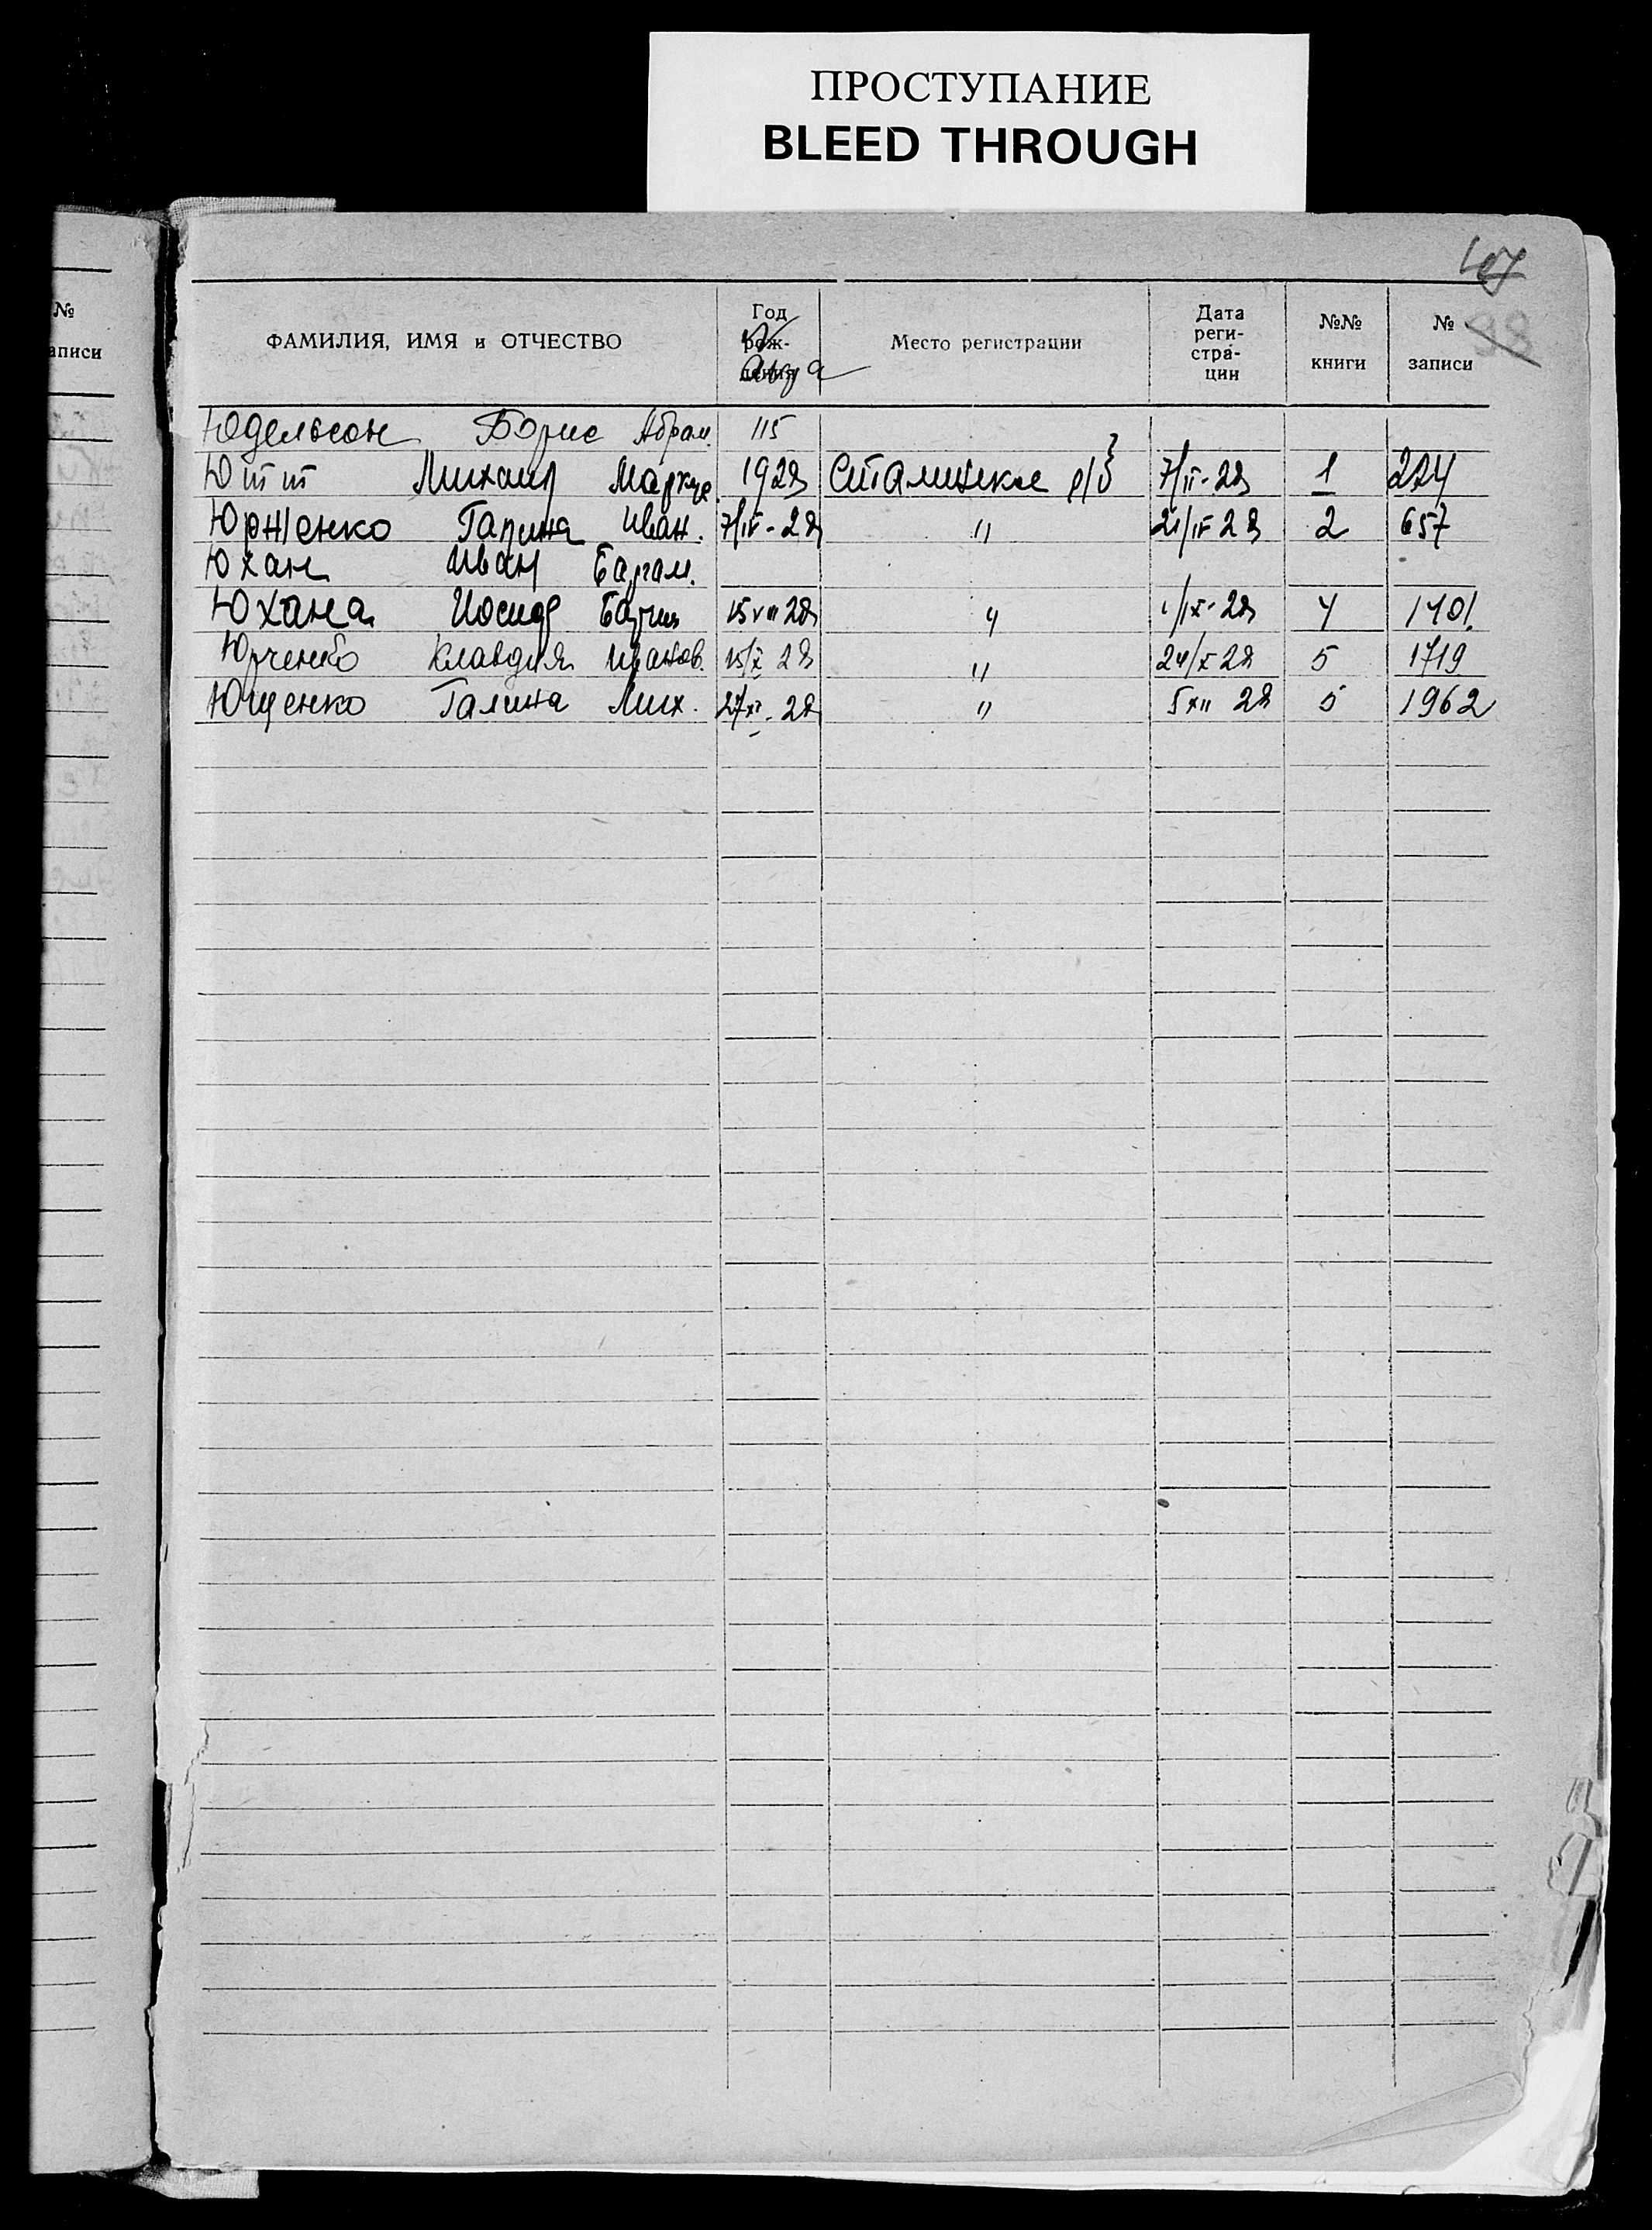 ПРОСТУПАНИЕ
BLEED THROUGH
107
98
№
аписи
ФАМИЛИЯ, ИМЯ и ОТЧЕСТВО Год рож- дения Место регистрации Дата реги- стра- ции №№ книги № записи
Юдельсон Борис Абрам. 115
Ютт Михаил 1928 Сталинское р/б 7/II-28 1 274
Юрженко Галина Иван. 7/IV-28 " 21/IV 28 2 657
Юхан Иван
Юхана Иосиф 15 VIII 28 " 1/IX-28 4 1401
Юрченко Клавдия Иванов. 15/X 28 " 24/X 28 5 1719
Ющенко Галина Мих. 27/XI-28 " 5 XII 28 5 1962